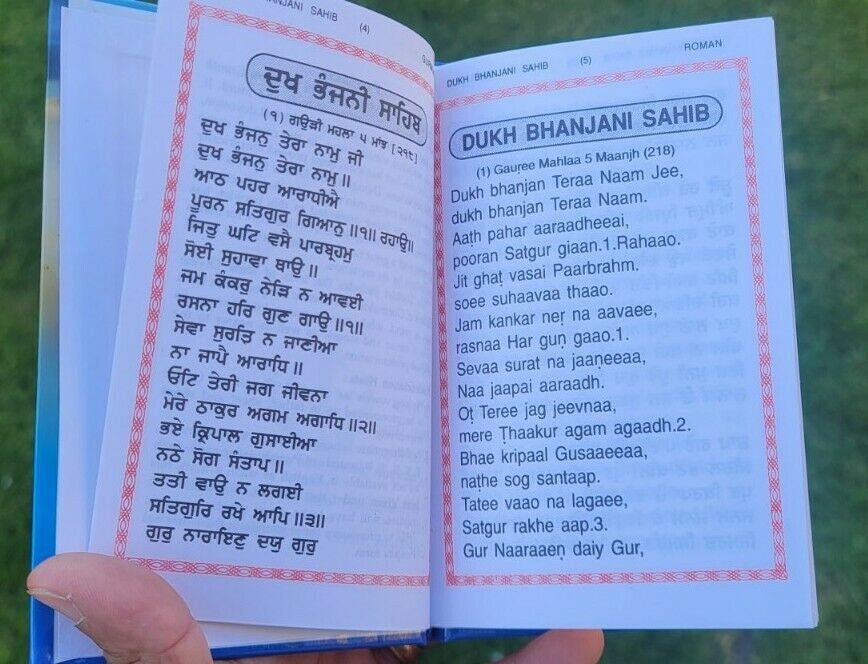 BHANJANI SAHIB (4)
ਦੁਖ ਭੰਜਨੀ ਸਾਹਿਬ
(੧) ਗਉੜੀ ਮਹਲਾ ੫ ਮਾਂਝ [੨੧੯]
ਦੁਖ ਭੰਜਨੁ ਤੇਰਾ ਨਾਮੁ ਜੀ
ਦੁਖ ਭੰਜਨੁ ਤੇਰਾ ਨਾਮੁ ॥
ਆਠ ਪਹਰ ਆਰਾਧੀਐ
ਪੂਰਨ ਸਤਿਗੁਰ ਗਿਆਨੁ ॥੧॥ ਰਹਾਉ॥
ਜਿਤੁ ਘਟਿ ਵਸੈ ਪਾਰਬ੍ਰਹਮੁ
ਸੋਈ ਸੁਹਾਵਾ ਥਾਉ ॥
ਜਮ ਕੰਕਰੁ ਨੇੜਿ ਨ ਆਵਈ
ਰਸਨਾ ਹਰਿ ਗੁਣ ਗਾਉ ॥੧॥
ਸੇਵਾ ਸੁਰਤਿ ਨ ਜਾਣੀਆ
ਨਾ ਜਾਪੈ ਆਰਾਧਿ ॥
ਓਟਿ ਤੇਰੀ ਜਗ ਜੀਵਨਾ
ਮੇਰੇ ਠਾਕੁਰ ਅਗਮ ਅਗਾਧਿ ॥੨॥
ਭਏ ਕ੍ਰਿਪਾਲ ਗੁਸਾਈਆ
ਨਠੇ ਸੋਗ ਸੰਤਾਪ ॥
ਤਤੀ ਵਾਉ ਨ ਲਗਈ
ਸਤਿਗੁਰਿ ਰਖੇ ਆਪਿ ॥੩॥
ਗੁਰੁ ਨਾਰਾਇਣੁ ਦਯੁ ਗੁਰੁ
DUKH BHANJANI SAHIB (5) ROMAN
DUKH BHANJANI SAHIB
(1) Gauṛee Mahlaa 5 Maanjh (218)
Dukh bhanjan Teraa Naam Jee,
dukh bhanjan Teraa Naam.
Aaṭh pahar aaraadheeai,
pooran Satgur giaan.1.Rahaao.
Jit ghaṭ vasai Paarbrahm.
soee suhaavaa thaao.
Jam kankar neṛ na aavaee,
rasnaa Har guṇ gaao.1.
Sevaa surat na jaaṇeeaa,
Naa jaapai aaraadh.
Oṭ Teree jag jeevnaa,
mere Ṭhaakur agam agaadh.2.
Bhae kripaal Gusaaeeaa,
naṭhe sog santaap.
Tatee vaao na lagaee,
Satgur rakhe aap.3.
Gur Naaraaeṇ daiy Gur,